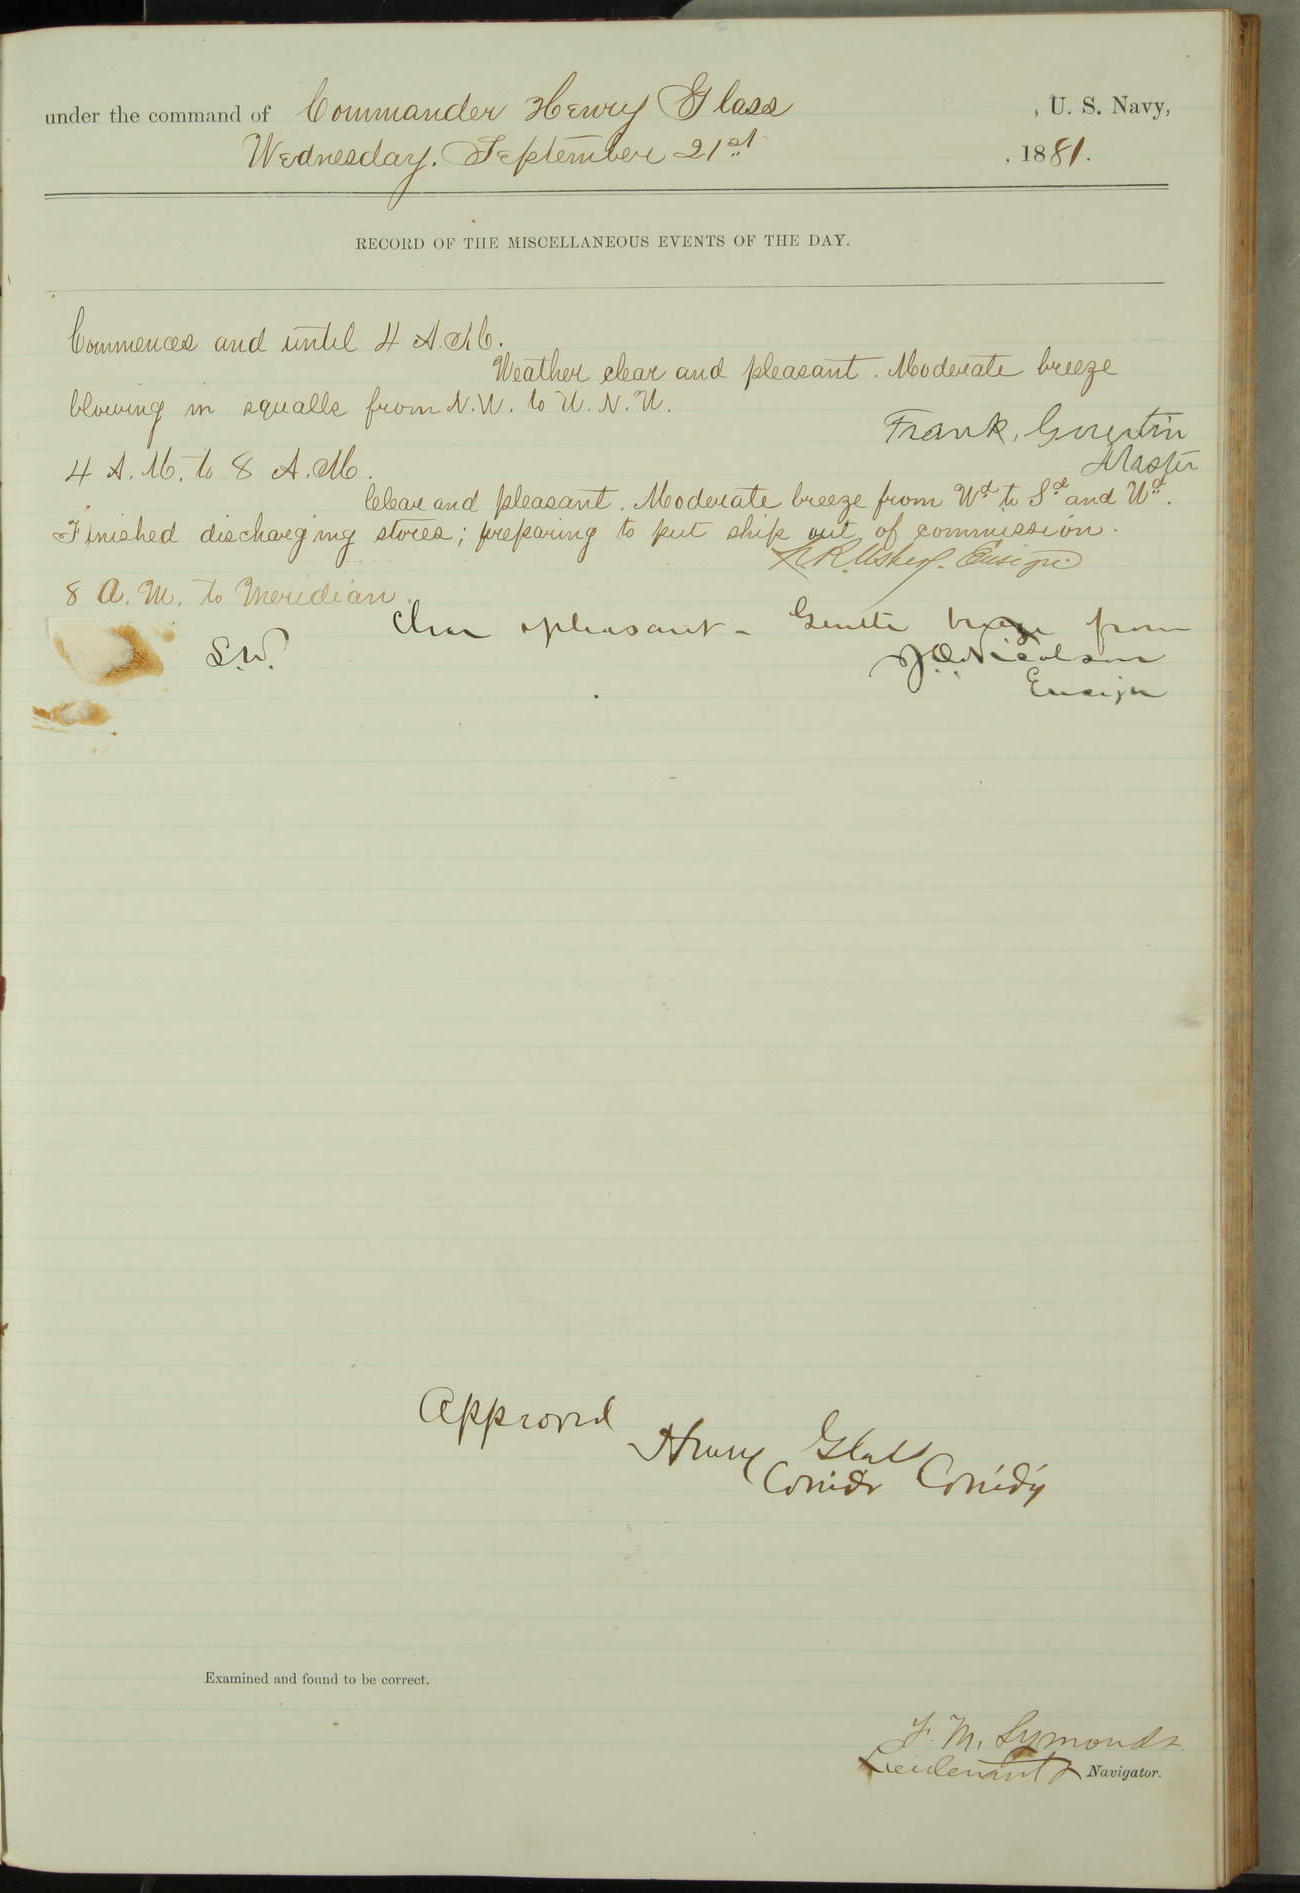 under the command of Commander Henry Glass , U. S. Navy,
Wednesday, September 21st , 1881.
RECORD OF THE MISCELLANEOUS EVENTS OF THE DAY.
Commences and until 4 A.M.
Weather clear and pleasant. Moderate breeze
blowing in squalls from N.W. to W.N.W.
Frank,
Master
4 A.M. to 8 A.M.
Clear and pleasant. Moderate breeze from Wd to Sd and Wd.
Finished discharging stores; preparing to put ship out of commission.
N.R. Usher, Ensign.
8 A.M. to Meridian.
Clear & pleasant - Gentle breeze from
S.W.
Ensign
Approved
Henry Glass
Comdr Comdg
Examined and found to be correct.
F. M. Symonds
Lieutenant & Navigator.